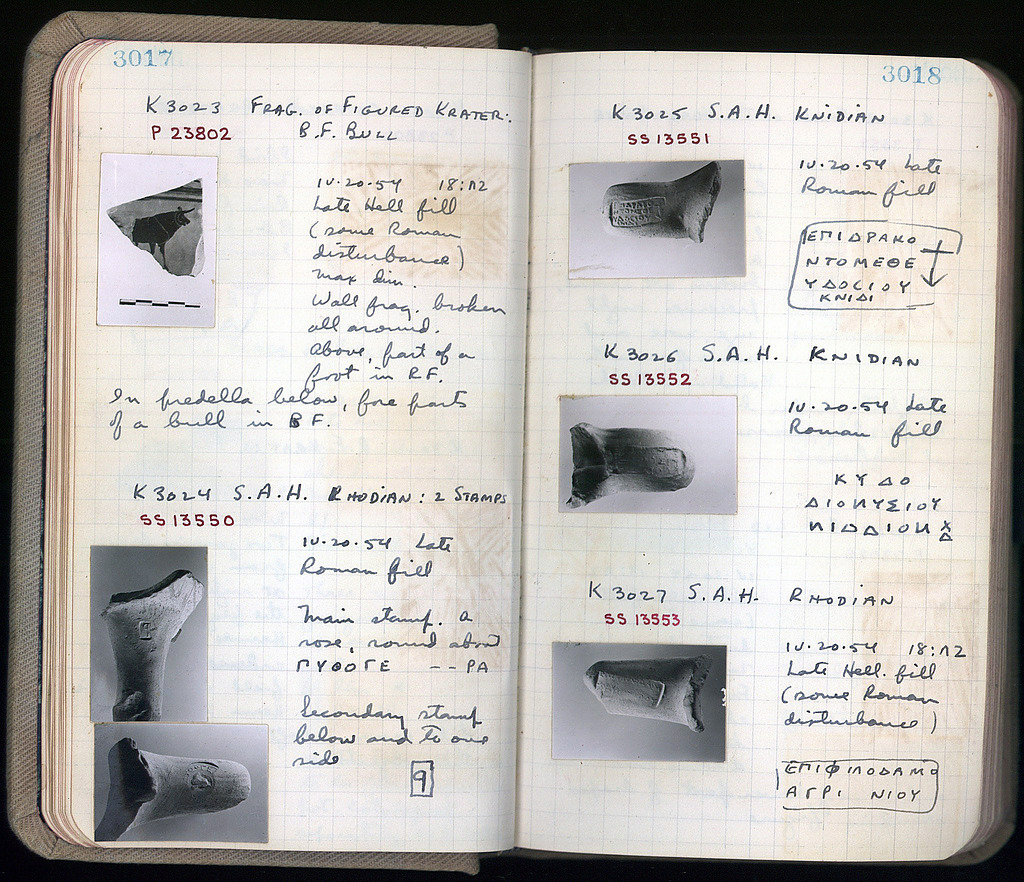 3017
K 3023 FRAG. OF FIGURED KRATER:
P 23802 B.F. BULL
IV·20·54 18:Π2
Late Hell fill
(some Roman
disturbance)
max dim.
Wall frag. broken
all around.
Above, part of a
foot in R.F.
In predella below, fore parts
of a bull in B F.
K 3024 S.A.H. RHODIAN: 2 STAMPS
SS 13550
IV·20·54 Late
Roman fill
Main stamp. a
rose, round about
ΠΥΘΟΓΕ -- ΡΑ
Secondary stamp
below and to one
side
3018
K 3025 S.A.H. KNIDIAN
SS 13551
IV·20·54 Late
Roman fill
ΕΠΙΔΡΑΚΟ
ΝΤΟΜΕΘΕ
ΥΔΟΣΙΟΥ
ΚΝΙΔΙ
K 3026 S.A.H. KNIDIAN
SS 13552
IV·20·54 Late
Roman fill
ΚΥΔΟ
ΔΙΟΝΥΣΙΟΥ
K 3027 S.A.H. RHODIAN
SS 13553
IV·20·54 18:Π2
Late Hell. fill
(some Roman
disturbance)
ΕΠΙΦΙΛΟΔΑΜΟ
ΑΓΡΙ ΝΙΟΥ